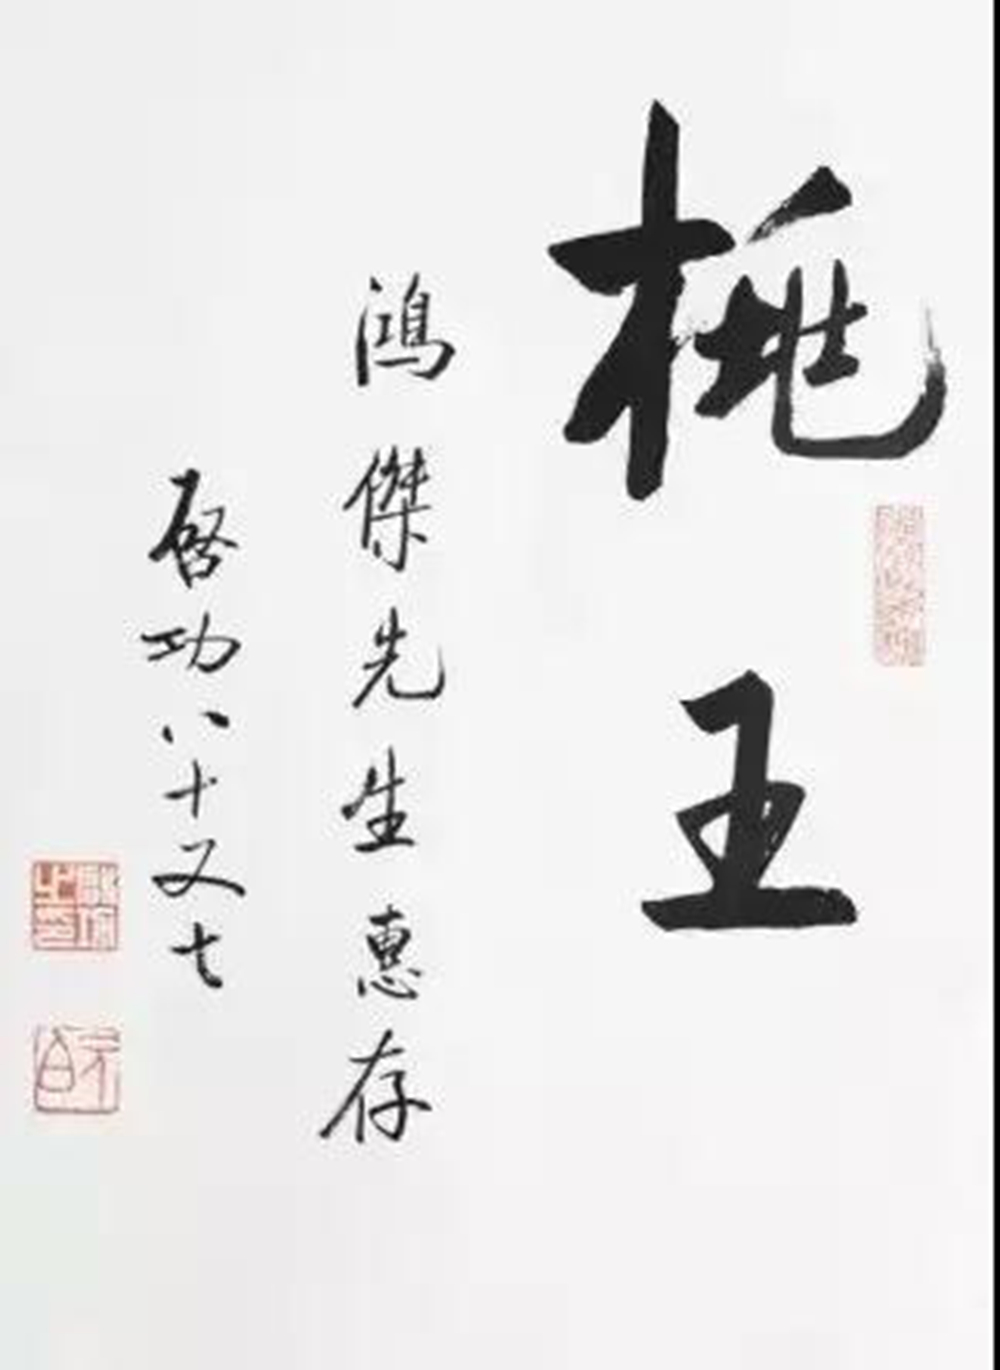 桃王
鴻傑先生惠存
啓功八十又七